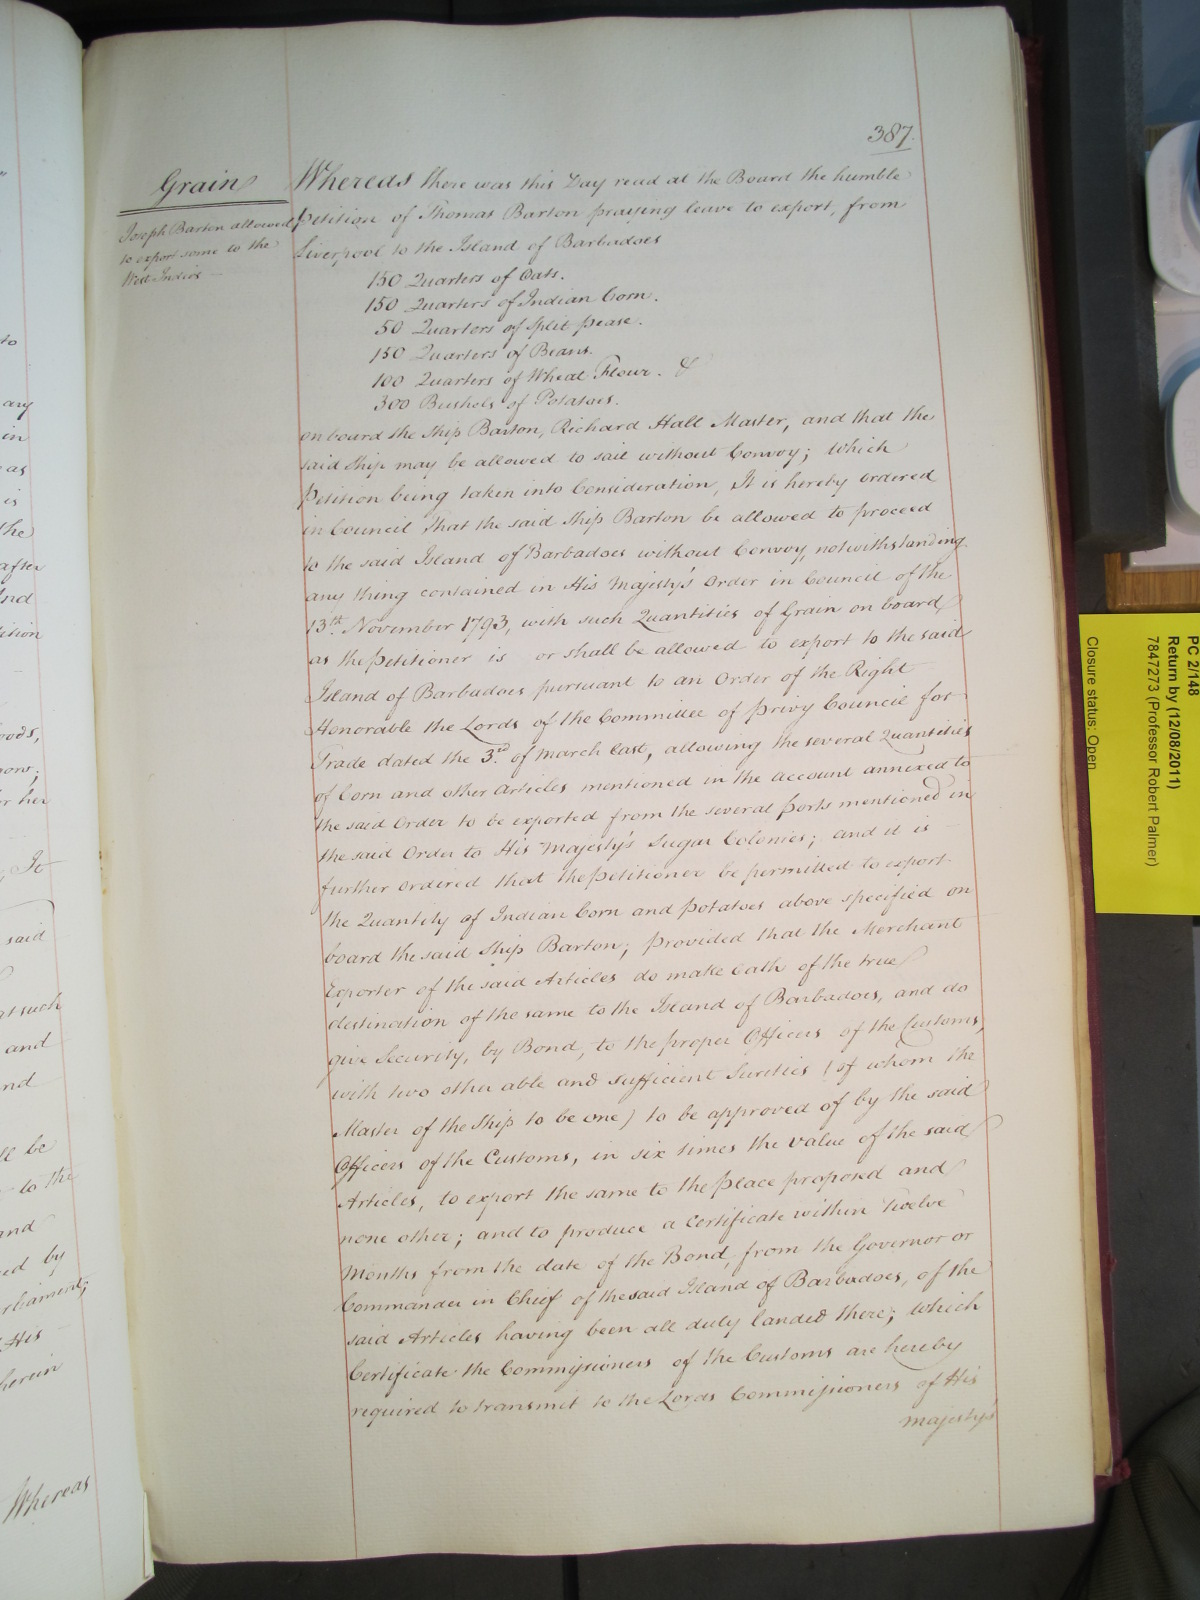 387.
Grain
Joseph Barton allowed
to export some to the
West Indies —
Whereas there was this Day read at the Board the humble
Petition of Thomas Barton praying leave to export, from
Liverpool to the Island of Barbadoes
150 Quarters of Oats.
150 Quarters of Indian Corn.
50 Quarters of Split Pease.
150 Quarters of Beans.
100 Quarters of Wheat Flour. &
300 Bushels of Potatoes.
on board the Ship Barton, Richard Hall Master, and that the
said Ship may be allowed to sail without Convoy; Which
Petition being taken into Consideration, It is hereby ordered
in Council that the said Ship Barton be allowed to proceed
to the said Island of Barbadoes without Convoy, notwithstanding
any thing contained in His Majesty's Order in Council of the
13th. November 1793, with such Quantities of Grain on board
as the Petitioner is or shall be allowed to export to the said
Island of Barbadoes pursuant to an Order of the Right
Honorable the Lords of the Committee of Privy Council for
Trade dated the 3rd. of March last, allowing the several Quantities
of Corn and other Articles mentioned in the account annexed to
the said Order to be exported from the several Ports mentioned in
the said Order to His Majesty's Sugar Colonies; and it is
further ordered that the Petitioner be permitted to export
the Quantity of Indian Corn and Potatoes above specified on
board the said Ship Barton; provided that the Merchant
Exporter of the said Articles do make Oath of the true
destination of the same to the Island of Barbadoes, and do
give Security, by Bond, to the proper Officers of the Customs,
with two other able and sufficient Sureties (of whom the
Master of the Ship to be one) to be approved of by the said
Officers of the Customs, in six times the value of the said
Articles, to export the same to the Place proposed and
none other; and to produce a Certificate within Twelve
Months from the date of the Bond, from the Governor or
Commander in Chief of the said Island of Barbadoes, of the
said Articles having been all duly landed there; Which
Certificate the Commissioners of the Customs are hereby
required to transmit to the Lords Commissioners of His
Majesty's
to
any
in
as
is
the
after
And
said
at such
and
be
to the
and
by
His
herein
Whereas
PC 2/148
Return by (12/08/2011)
7847273 (Professor Robert Palmer)
Closure status: Open